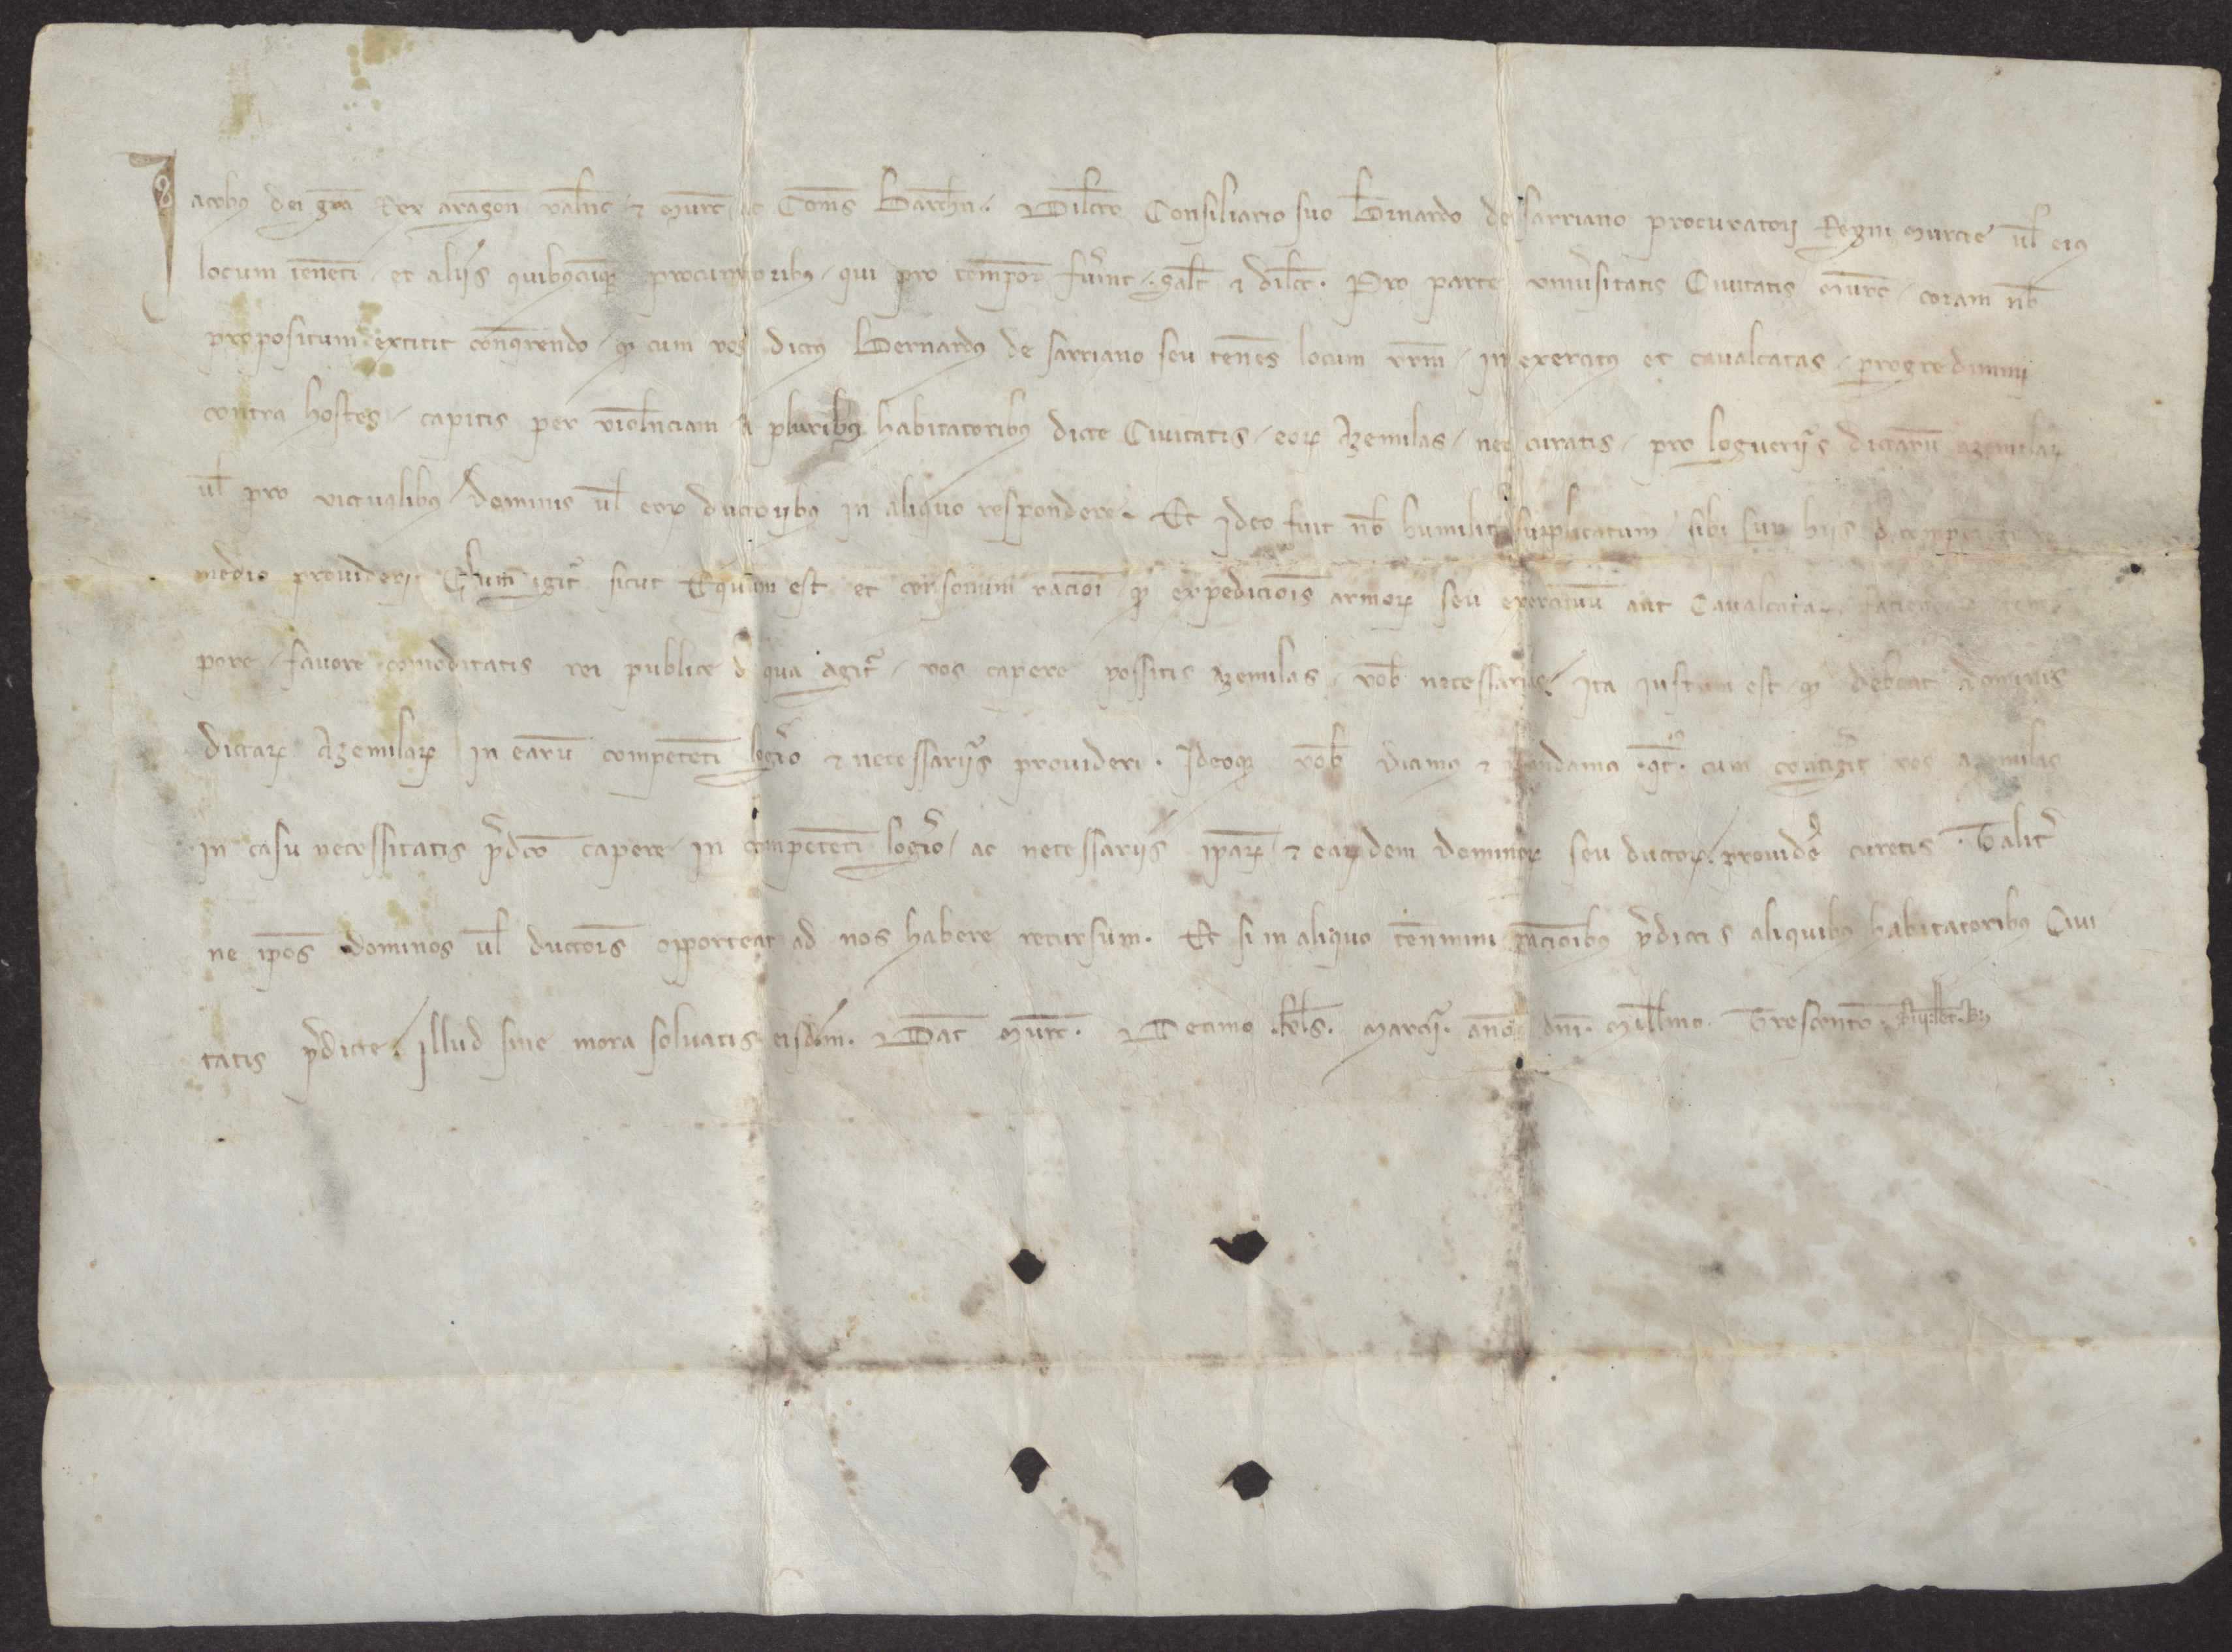 Iacobus dei gra Rex aragon valenc ⁊ murc ac Coms Barchn. Dilcto Consiliario suo Bernardo de sarriano procuratorj Regni murcie ul eius
locum tenenti et aliis quibuscumque procuratoribus qui pro tempore fuerint salt ⁊ dilcc. Pro parte uniusitatis Ciuitatis murc coram nob
propositum extitit conquerendo quod cum vos dictus Bernardus de sarriano seu tenens locum vrm in exercitus et caualcatas progredimini
contra hostes capitis per violenciam a pluribus habitatoribus dicte Ciuitatis eorum Azemilas nec curatis pro logueriis dictarum azemilarum
ul pro victualibus dominis ul eorum ductoribus in aliquo respondere. Et Ideo fuit nob humiliter supplicatum sibi super hiis de
medio prouiderj Cum igitur sicut Equum est et consonum racioni quod expedicionis armorum seu exercituum aut Caualcatarum
pore fauore comoditatis rei publice de qua agitur vos capere possitis azemilas vob necessarias. Ita iustum est quod debeat dominis
dictarum Azemilarum in earum competenti logerio ⁊ necessariis prouideri. Ideoque vob dicimus ⁊ mandamus qt. cum contigerit vos azemilas
in casu necessitatis predicto capere in competenti logerio ac necessariis ipsarum ⁊ earundem dominorum seu ductorum prouidere curetis. Taliter
ne ipsos dominos ul ductores opporteat ad nos habere recursum. Et si in aliquo tenemini racionibus predictis aliquibus habitatoribus Ciui
tatis predicte. Illud sine mora soluatis eisdem. Dat murc. Decimo kls. marcij. anno dni. Millmo. Trescento.